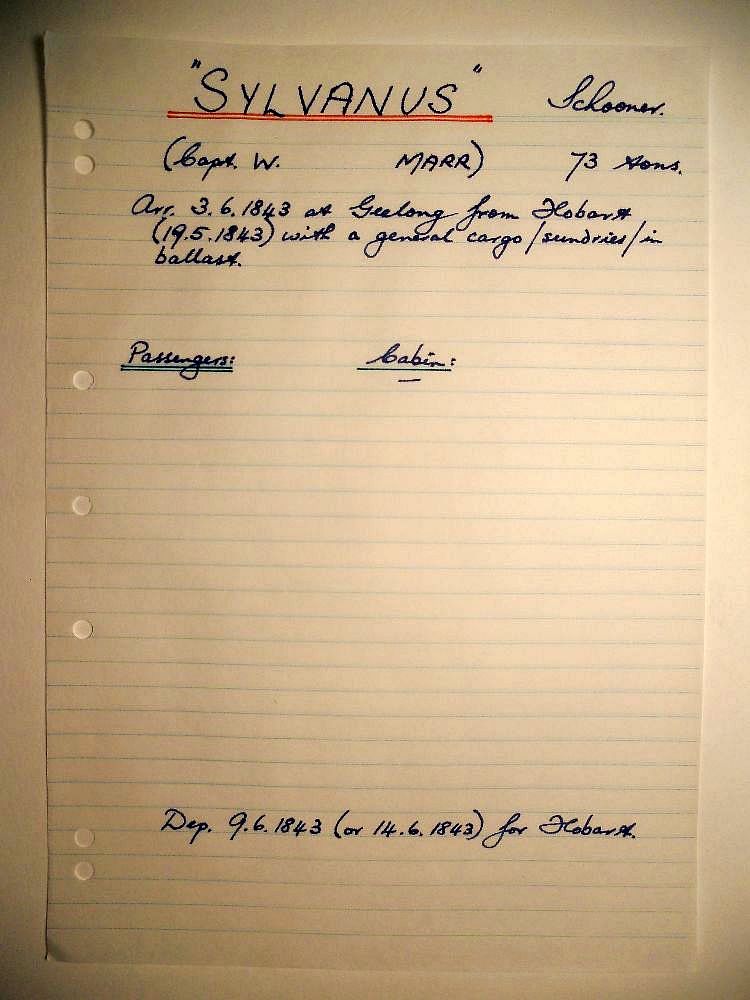 "SYLVANUS" Schooner.
(Capt. W. MARR) 73 tons.
Arr. 3.6.1843 at Geelong from Hobart
(19.5.1843) with a general cargo/sundries/in
ballast.
Passengers: Cabin:
—
Dep. 9.6.1843 (or 14.6.1843) for Hobart.